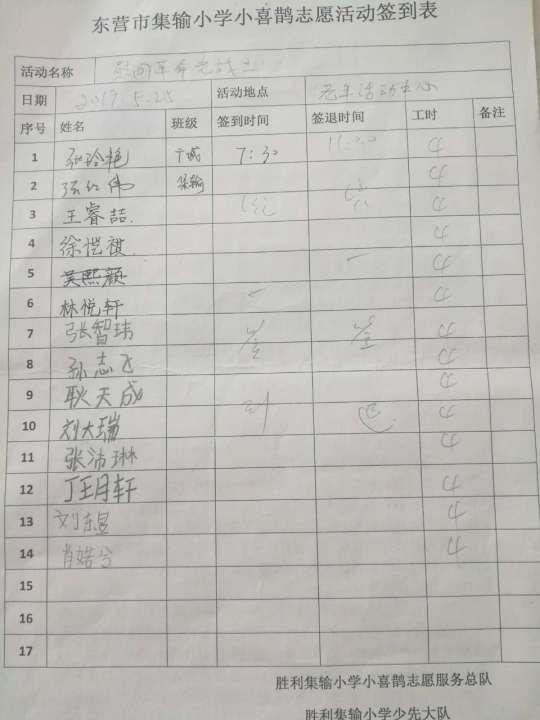 东营市集输小学小喜鹊志愿活动签到表
活动名称 慰问革命老战士
日期 2017.5.25 活动地点 老年活动中心
序号 姓名 班级 签到时间 签退时间 工时 备注
1 张玲艳 7:30 11:30 4
2 张红伟 集输 4
3 王睿喆. 4
4 徐恺祺. 4
5 吴熙颜 4
6 林悦轩 4
7 张智玮 4
8 孙志飞 4
9 耿天成 4
10 刘大瑞 4
11 张沛琳 4
12 丁王月轩 4
13 刘东昱 4
14 肖婼兮 4
15
16
17
胜利集输小学小喜鹊志愿服务总队
胜利集输小学少先大队